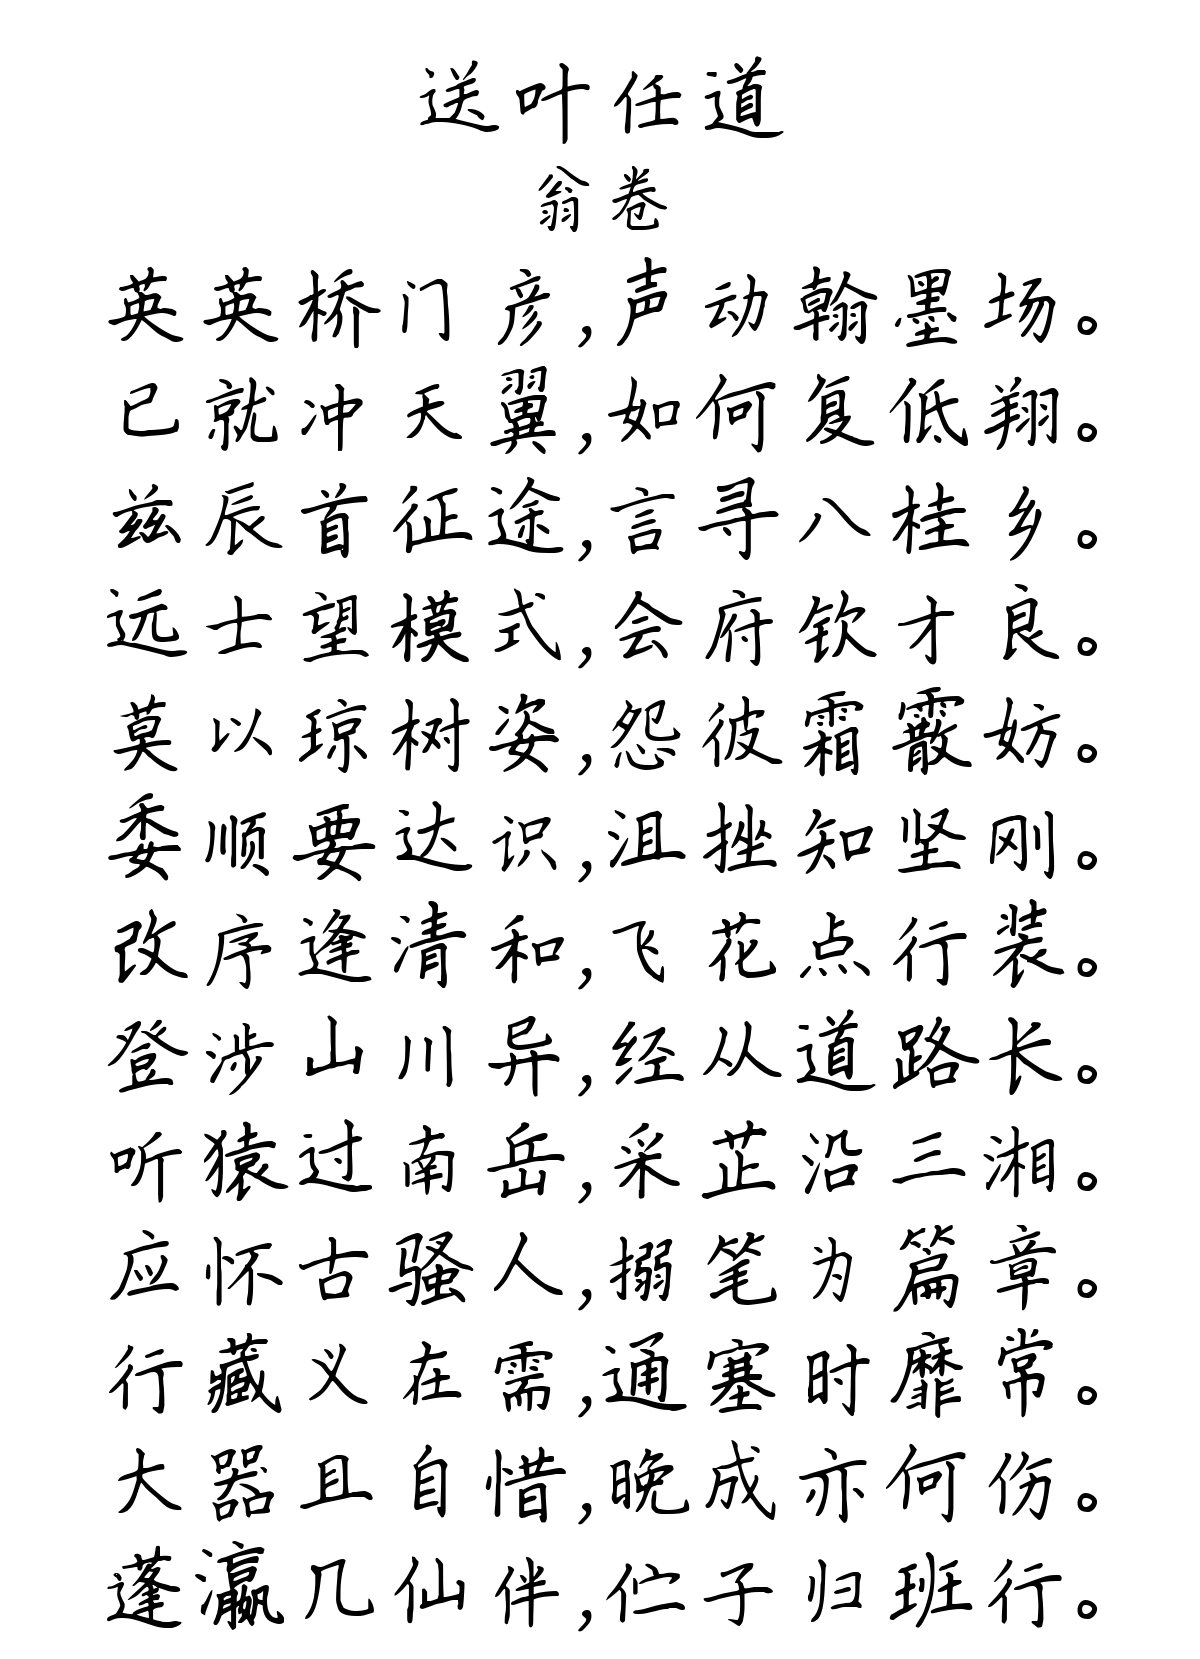 送叶任道
翁卷
英英桥门彦,声动翰墨场。
已就冲天翼,如何复低翔。
兹辰首征途,言寻八桂乡。
远士望模式,会府钦才良。
莫以琼树姿,怨彼霜霰妨。
委顺要达识,沮挫知坚刚。
改序逢清和,飞花点行装。
登涉山川异,经从道路长。
听猿过南岳,采芷沿三湘。
应怀古骚人,搦笔为篇章。
行藏义在需,通塞时靡常。
大器且自惜,晚成亦何伤。
蓬瀛几仙伴,伫子归班行。